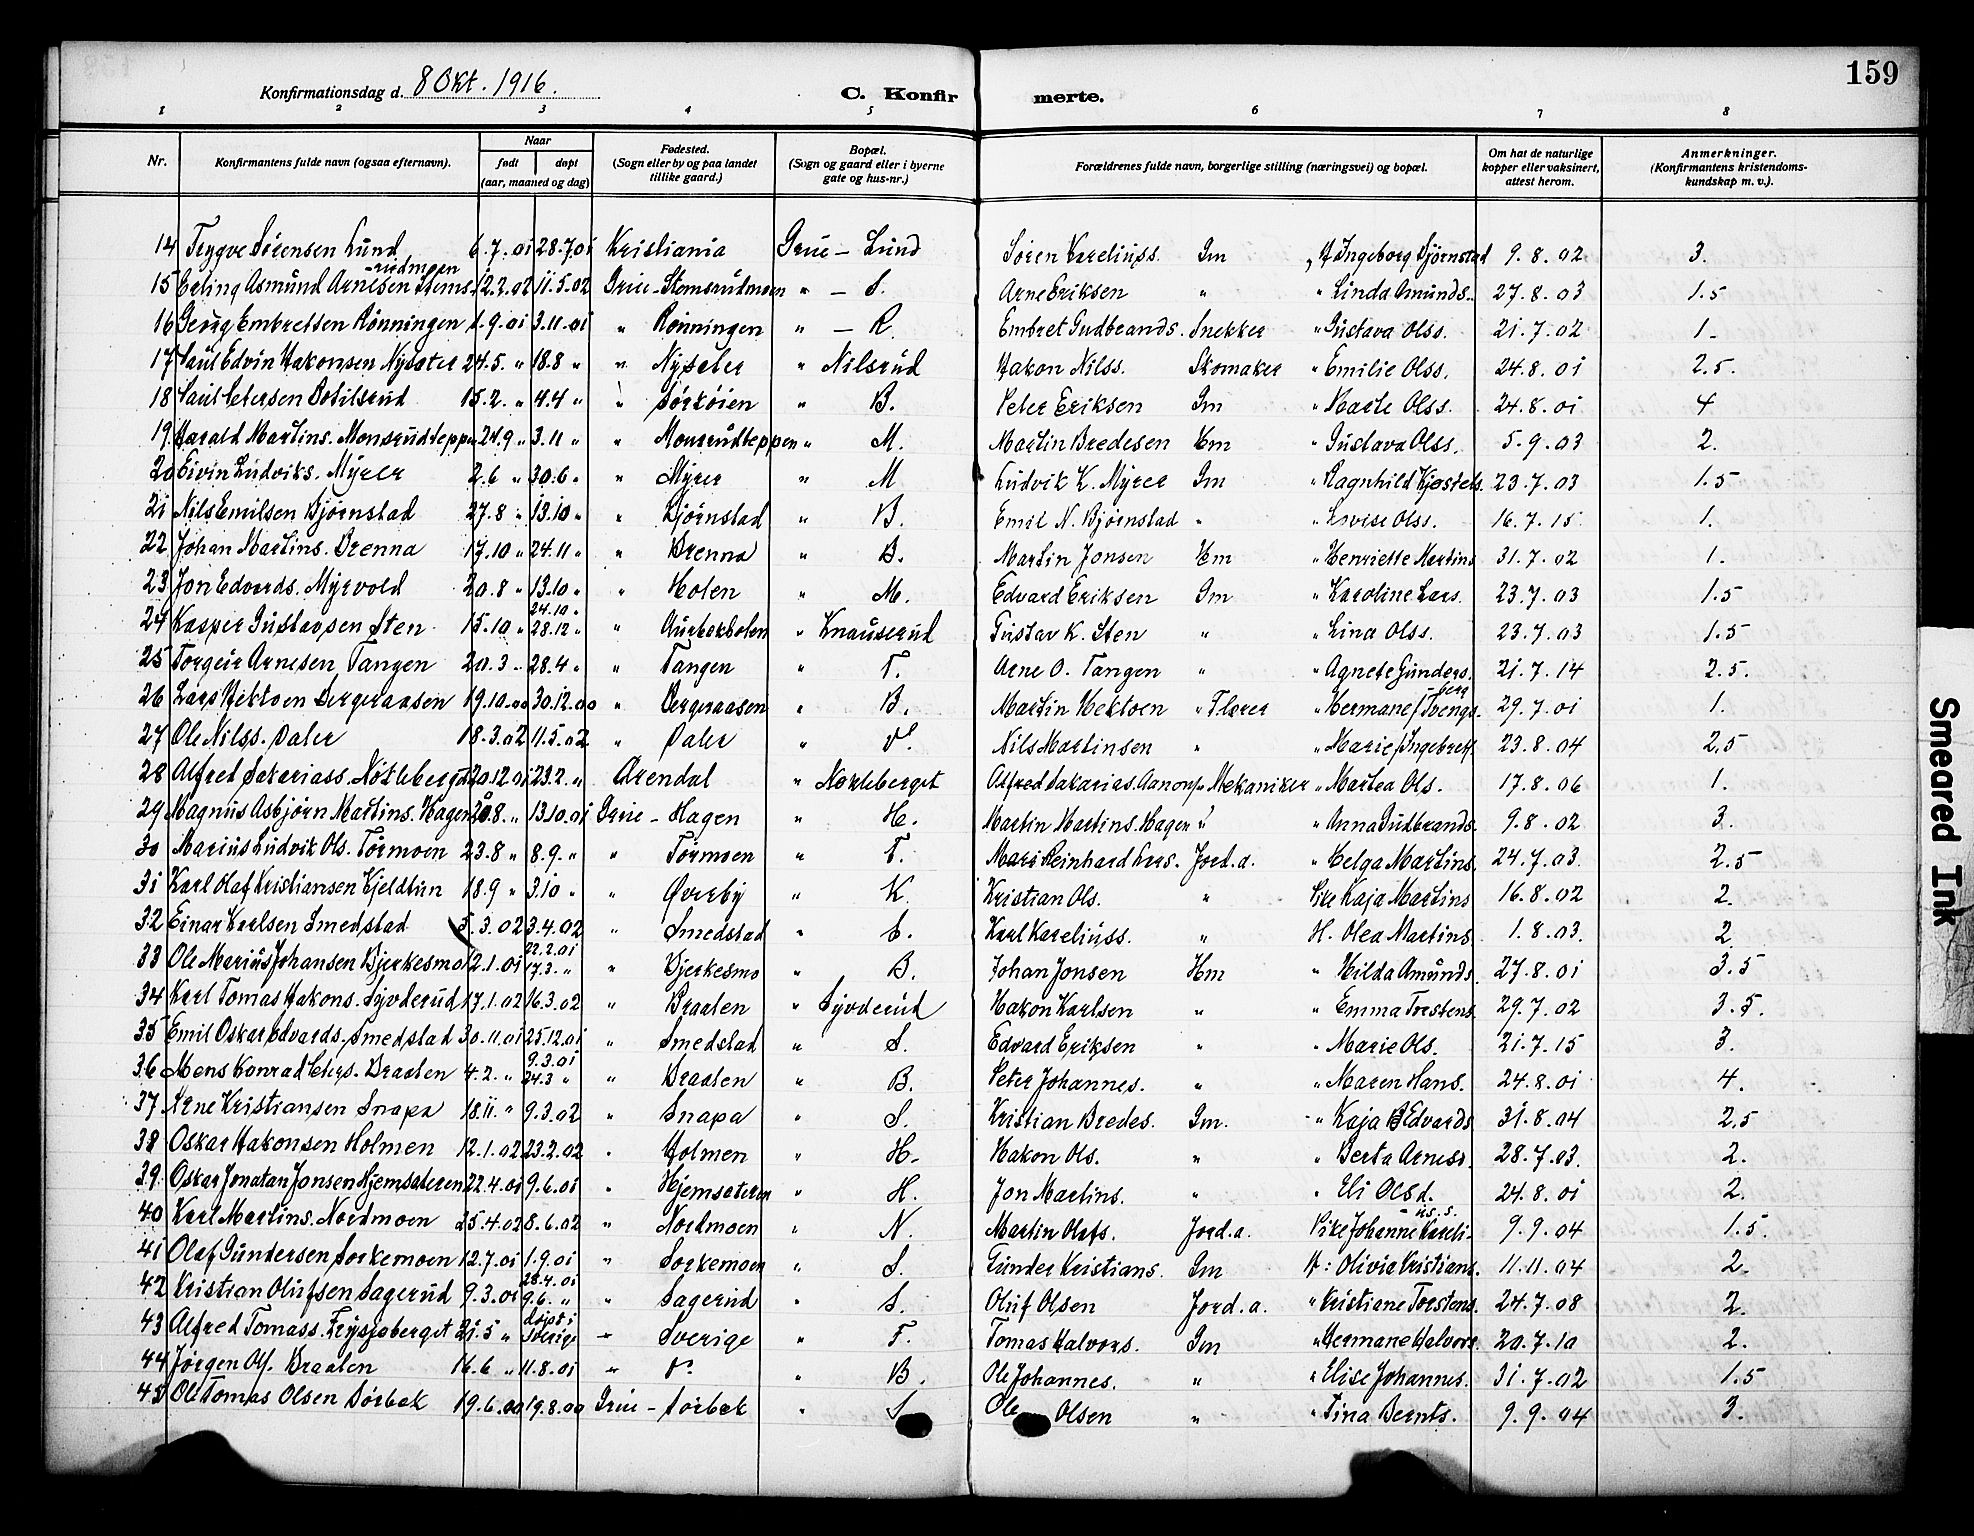 159
Konfirmationsdag d. 8 Okt. 1916.
C. Konfirmerte.
1 2 3 4 5 6 7 8
Nr. Konfirmantens fulde navn (ogsaa efternavn). Naar født døpt (aar, maaned og dag) Fødested. (Sogn eller by og paa landet tillike gaard.) Bopæl. (Sogn og gaard eller i byerne gate og hus-nr.) Forældrenes fulde navn, borgerlige stilling (næringsvei) og bopæl. Om hat de naturlige kopper eller vaksinert, attest herom. Anmerkninger. (Konfirmantens kristendomskundskap m. v.).
14 Trygve Sørensen Lund 6.7.01 28.7.01 Kristiania Grue - Lund Søren Kareliuss. Gm H Ingeborg Bjørnstad 9.8.02 3.
15 Erling Asmund Arnesen Stemsrudmoen 12.2.02 11.5.02 Grue - Stemsrudmoen " - S. Arne Eriksen " " Linda Amunds. 27.8.03 1.5
16 Georg Embretsen Rønningen 1.9.01 3.11.01 " Rønningen " - R. Embret Gudbrands. Snekker " Gustava Olss. 21.7.02 1 -
17 Paul Edvin Hakonsen Nysæter 24.5. " 18.8 " " Nysæter " Nilsrud Hakon Nilss. Skomaker " Emilie Olss. 24.8.01 2.5.
18 Paul Petersen Botilsrud 15.2. " 4.4 " " Sørkoien " B. Peter Eriksen Gm " Marte Olss. 24.8.01 4
19 Harald Martins. Monsrudteppen 24.9 " 3.11 " " Monsrudteppen " M. Martin Bredesen Hm " Gustava Olss. 5.9.03 2.
20 Eivin Ludviks. Myrer 2.6 " 30.6 " " Myrer " M Ludvik K. Myrer Gm " Ragnhild Kjøstels. 23.7.03 1.5
21 Nils Emilsen Bjørnstad 27.8 " 13.10 " " Bjørnstad " B. Emil N. Bjørnstad " " Lovise Olss. 16.7.15 1.
22 Johan Martins. Brenna 17.10 " 24.11 " " Brenna " B. Martin Jonsen Hm " Henriette Martins 31.7.02 1.
23 Jon Edvards. Myrvold 20.8 " 13.10 " " Holen " M. Edvard Eriksen Gm " Karoline Lars. 23.7.03 1.5
24 Kasper Gustavsen Sten 15.10 " 24.10 " 28.12 " " Aurbekbolen " Knauserud Gustav K. Sten " " Lina Olss. 23.7.03 1.5
25 Torgeir Arnesen Tangen 20.3 " 28.4 " " Tangen " T. Arne O. Tangen " " Agnete Gunders. 21.7.14 2.5.
26 Lars Hektoen Bergeraasen 19.10.00 30.12.00 " Bergeraasen " B. Martin Hektoen " Flører " Hermane Tvengsberg 29.7.01 1.
27 Ole Nilss. Daler 18.3.02 11.5.02 " Daler " D. Nils Martinsen " " Marie Ingebretss. 23.8.04 2.5
28 Alfred Sakariass. Nøkleberget 20.12.01 23.2. " Arendal " Nøkleberget Alfred Sakarias. Aanons. Mekaniker " Martea Ols. 17.8.06 1.
29 Magnus Asbjørn Martins. Hagen 20.8. " 13.10.01 Grue - Hagen " H. Martin Martins. Hagen " " Anna Gudbrands. 9.8.02 3.
30 Marius Ludvik Ols. Tørmoen 23.8 " 8.9. " " Tørmoen " T. Reinhard Lars. Jord.a. " Helga Martins. 24.7.03. 2.5
31 Karl Olaf Kristiansen Kjeldtun 18.9 " 3.10 " " Øverby " K. Kristian Ols. " Pike Kaja Martins 16.8.02 2.
32 Einar Karlsen Smedstad 5.3.02 3.4.02 " Smedstad " S. Karl Kareliuss. " H. Olea Martins. 1.8.03. 2.
33 Ole Marius Johansen Bjerkesmo 2.1.01 22.2.01 17.3. " " Bjerkesmo " B. Johan Jonsen Hm " Hilda Amunds. 27.8.01 3.5
34 Karl Tomas Hakons. Syvderud 17.1.02 16.3.02 " Braaten " Syvderud Hakon Karlsen " " Emma Torstens. 29.7.02 3.5.
35 Emil Oskar Edvards. Smedstad 30.11.01 25.12.01 " Smedstad " S. Edvard Eriksen " " Marie Ols. 21.7.15 3.
36 Mons Konrad Peters. Braaten 4.2. " 9.3.01 24.3 " " Braaten " B. Peter Johannes. " " Maren Hans. 24.8.01 4.
37 Arne Kristiansen Snapa 18.11. " 9.3.02 " Snapa " S. Kristian Bredes. Gm. " Kaja Edvards 31.8.04 2.5
38 Oskar Hakonsen Holmen 12.1.02 23.2.02 " Holmen " H. Hakon Ols. " " Berta Arness. 28.7.03. 2.
39 Oskar Jonatan Jonsen Hjemsæteren 22.4.01 9.6.01 " Hjemsæteren " H. Jon Martins. " " Eli Olsd. 24.8.01 2.
40 Karl Martins. Nordmoen 25.4.02 8.6.02 " Nordmoen " N. Martin Olafs. Jord.a. Pike Johanne Kareliuss. 9.9.04 1.5.
41 Olaf Gundersen Sorkemoen 12.7.01 1.9.01 " Sorkemoen " S. Gunder Kristians. Gm H: Olivia Kristians. 11.11.04 2.
42 Kristian Olufsen Sagerud 9.3.01 28.4.01 9.6. " " Sagerud " S. Oluf Olsen Jord.a. " Kristiane Torstens. 24.7.08 2.
43 Alfred Tomass. Frysjøberget 21.5 " døpt i Sverige " Sverige " F. Tomas Halvors. Gm " Hermane Halvors. 20.7.10 2.
44 Jørgen Ols. Braaten 16.6 " 11.8.01 " " B. Ole Johannes. " " Elise Johannes. 31.7.02 1.5
45 Ole Tomas Olsen Sørbæk 19.6.00 19.8.00 Grue - Sørbæk " S. Ole Olsen " " Tina Bernts. 9.9.04 3.
Smeared Ink